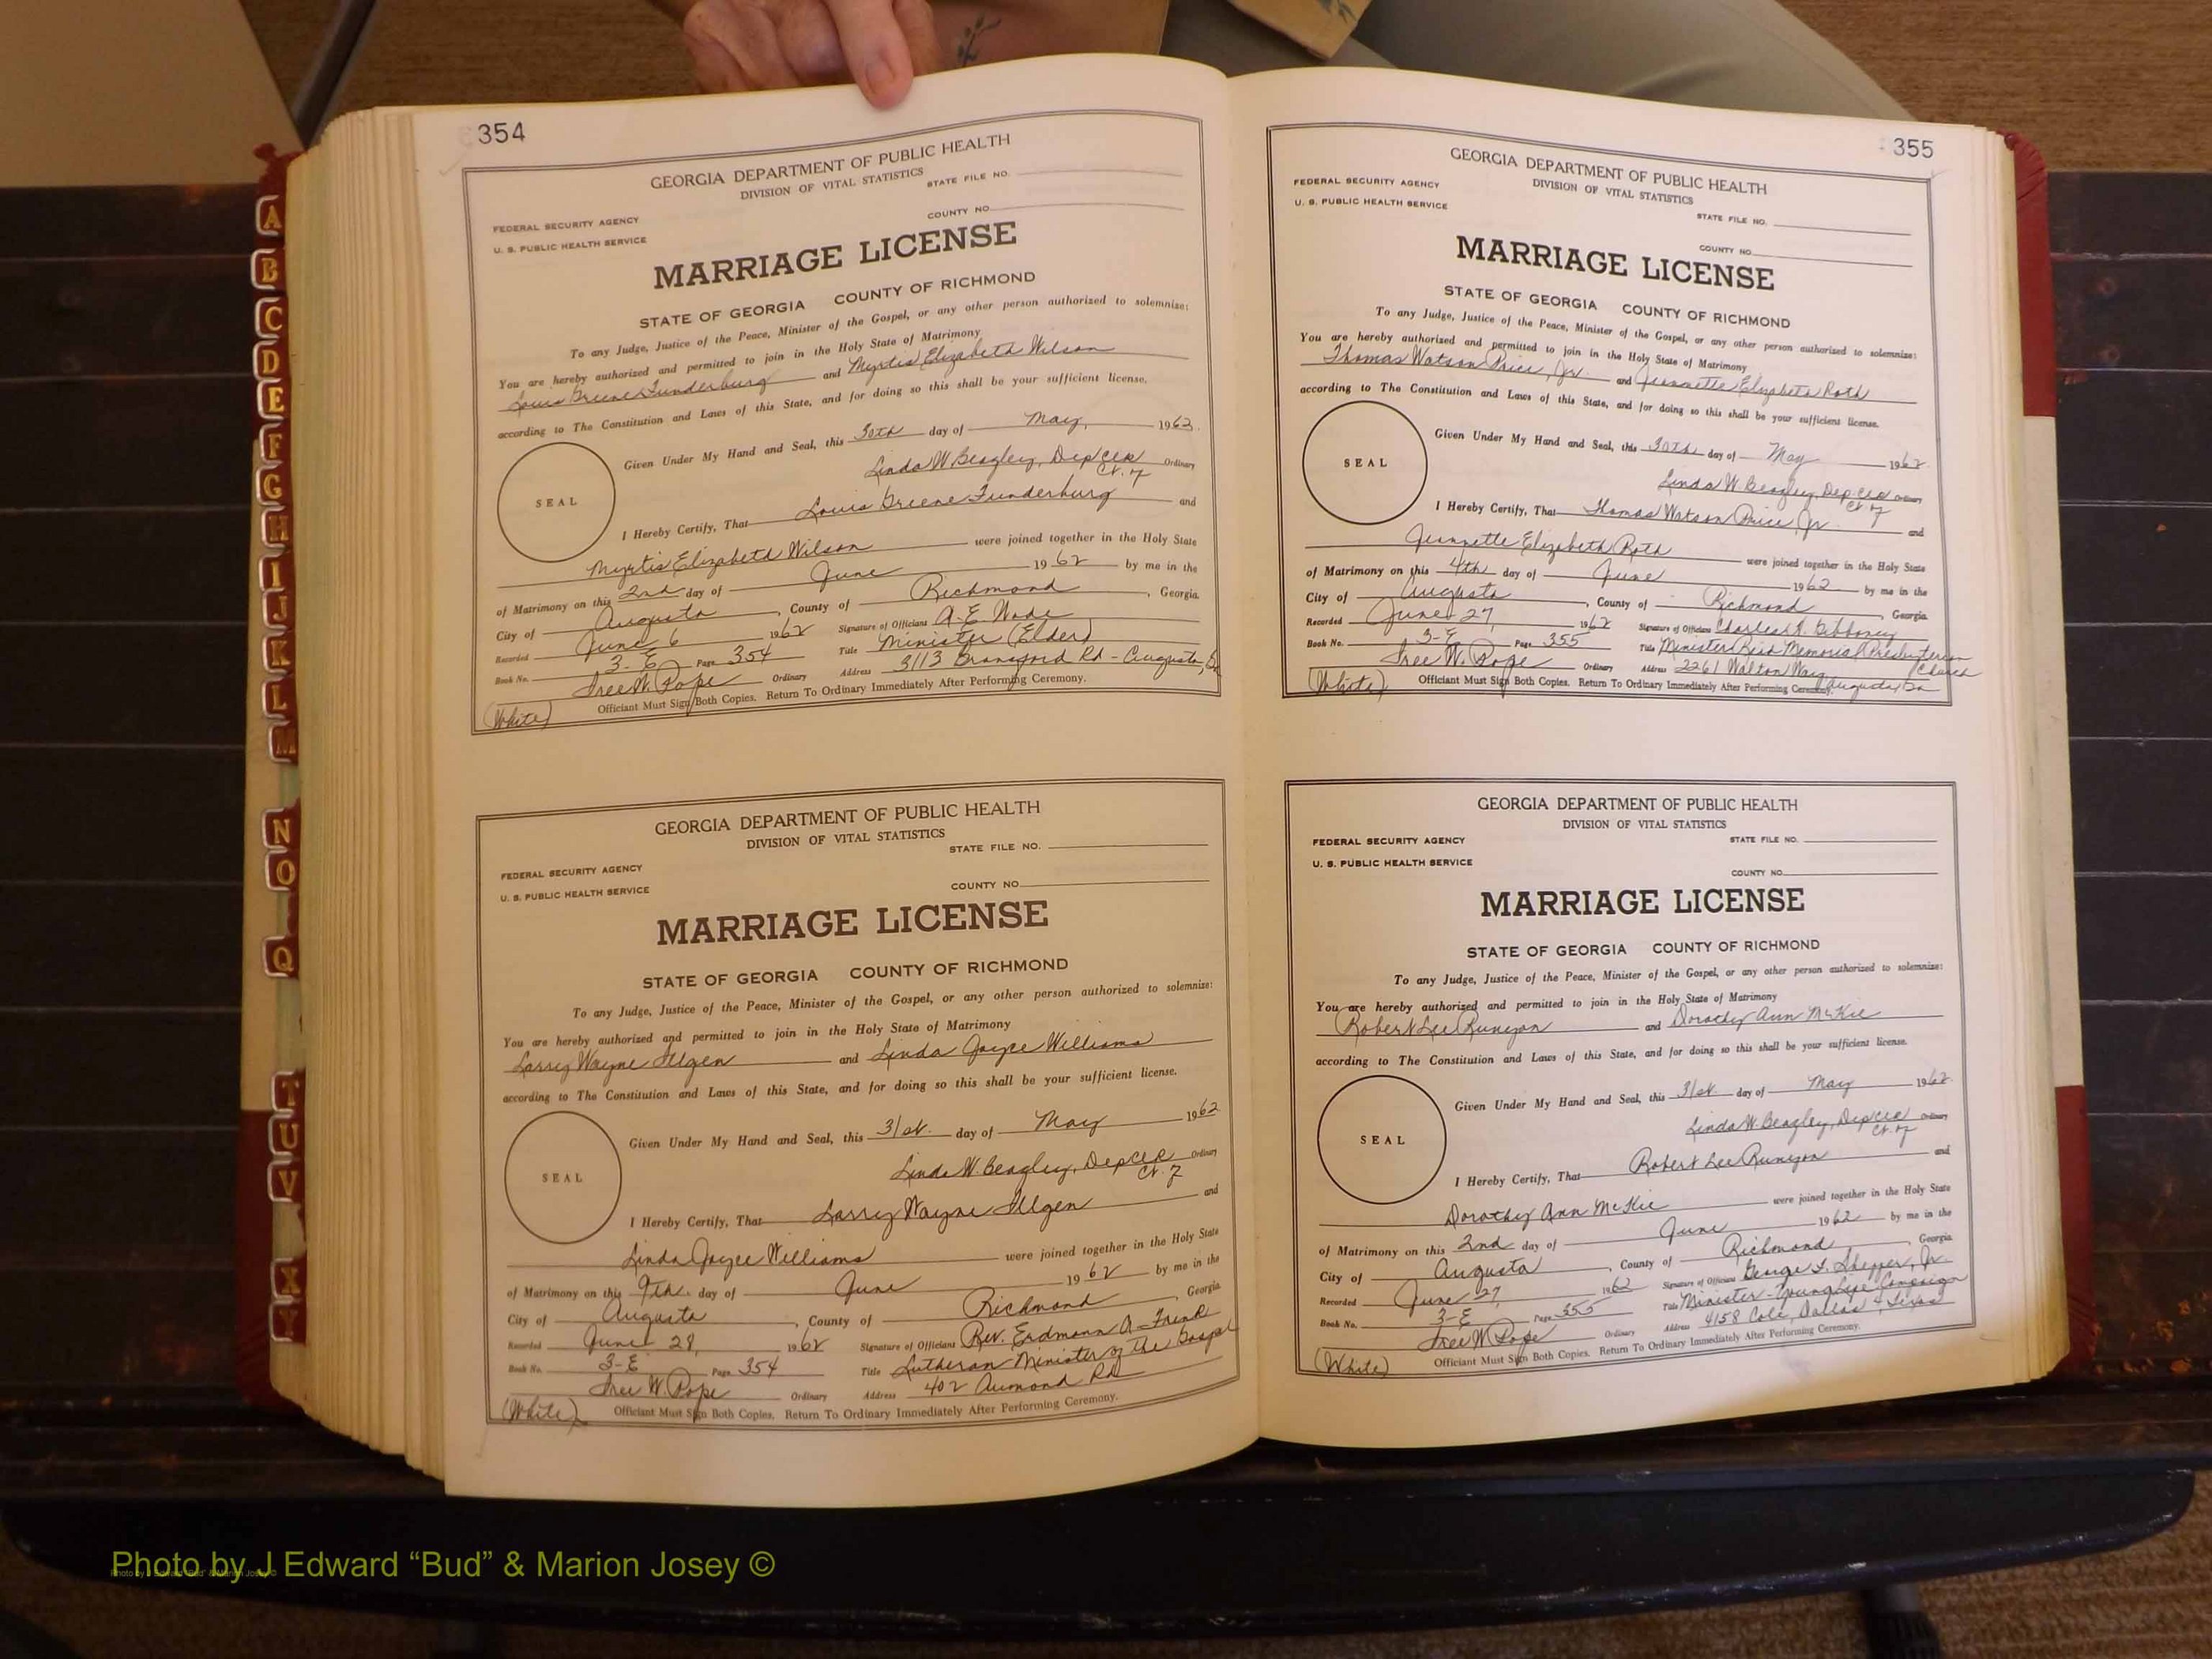 A
B
C
D
E
F
G
H
I
J
K
L
M
N
O
Q
T
U
V
X
Y
354
GEORGIA DEPARTMENT OF PUBLIC HEALTH
DIVISION OF VITAL STATISTICS
STATE FILE NO.
FEDERAL SECURITY AGENCY
COUNTY NO.
U. S. PUBLIC HEALTH SERVICE
MARRIAGE LICENSE
STATE OF GEORGIA COUNTY OF RICHMOND
To any Judge, Justice of the Peace, Minister of the Gospel, or any other person authorized to solemnize:
You are hereby authorized and permitted to join in the Holy State of Matrimony
Louis Greene Funderburg and Myrtis Elizabeth Wilson
according to The Constitution and Laws of this State, and for doing so this shall be your sufficient license.
Given Under My Hand and Seal, this 30th day of May, 1962.
SEAL
Linda W. Beagley, Dep Clk Ordinary
Ct. of
I Hereby Certify, That Louis Greene Funderburg and
Myrtis Elizabeth Wilson were joined together in the Holy State
of Matrimony on this 2nd day of June 1962 by me in the
City of Augusta, County of Richmond, Georgia.
Recorded June 6 1962 Signature of Officiant A. E. Wade
Book No. 3-E Page 354 Title Minister (Elder)
Tree W. Pope Ordinary Address 3113 Bransford Rd - Augusta, Ga
(White) Officiant Must Sign Both Copies. Return To Ordinary Immediately After Performing Ceremony.
GEORGIA DEPARTMENT OF PUBLIC HEALTH
DIVISION OF VITAL STATISTICS
STATE FILE NO.
FEDERAL SECURITY AGENCY
U. S. PUBLIC HEALTH SERVICE COUNTY NO.
MARRIAGE LICENSE
STATE OF GEORGIA COUNTY OF RICHMOND
To any Judge, Justice of the Peace, Minister of the Gospel, or any other person authorized to solemnize:
You are hereby authorized and permitted to join in the Holy State of Matrimony
Larry Wayne Illgen and Linda Joyce Williams
according to The Constitution and Laws of this State, and for doing so this shall be your sufficient license.
Given Under My Hand and Seal, this 31st. day of May 1962
SEAL
Linda W. Beagley, Dep Clk Ordinary
Ct. of
I Hereby Certify, That Larry Wayne Illgen and
Linda Joyce Williams were joined together in the Holy State
of Matrimony on this 9th day of June 1962 by me in the
City of Augusta, County of Richmond, Georgia.
Recorded June 28, 1962 Signature of Officiant Rev. Erdmann A. Frenk
Book No. 3-E Page 354 Title Lutheran Minister of the Gospel
Tree W. Pope Ordinary Address 402 Aumond Rd
(White) Officiant Must Sign Both Copies. Return To Ordinary Immediately After Performing Ceremony.
355
GEORGIA DEPARTMENT OF PUBLIC HEALTH
FEDERAL SECURITY AGENCY DIVISION OF VITAL STATISTICS
U. S. PUBLIC HEALTH SERVICE STATE FILE NO.
COUNTY NO.
MARRIAGE LICENSE
STATE OF GEORGIA COUNTY OF RICHMOND
To any Judge, Justice of the Peace, Minister of the Gospel, or any other person authorized to solemnize:
You are hereby authorized and permitted to join in the Holy State of Matrimony
Thomas Watson Price, Jr. and Jeannette Elizabeth Roth
according to The Constitution and Laws of this State, and for doing so this shall be your sufficient license.
Given Under My Hand and Seal, this 30th day of May 1962
SEAL
Linda W. Beagley, Dep Clk Ordinary
Ct of
I Hereby Certify, That Thomas Watson Price, Jr. and
Jeannette Elizabeth Roth were joined together in the Holy State
of Matrimony on this 4th day of June 1962 by me in the
City of Augusta, County of Richmond, Georgia.
Recorded June 27, 1962 Signature of Officiant Charles H. Gibboney
Book No. 3-E Page 355 Title Minister Reid Memorial Presbyterian
Church
Tree W. Pope Ordinary Address 2261 Walton Way
Augusta, Ga
(White) Officiant Must Sign Both Copies. Return To Ordinary Immediately After Performing Ceremony.
GEORGIA DEPARTMENT OF PUBLIC HEALTH
DIVISION OF VITAL STATISTICS
FEDERAL SECURITY AGENCY STATE FILE NO.
U. S. PUBLIC HEALTH SERVICE
COUNTY NO.
MARRIAGE LICENSE
STATE OF GEORGIA COUNTY OF RICHMOND
To any Judge, Justice of the Peace, Minister of the Gospel, or any other person authorized to solemnize:
You are hereby authorized and permitted to join in the Holy State of Matrimony
Robert Lee Runyon and Dorothy Ann McKie
according to The Constitution and Laws of this State, and for doing so this shall be your sufficient license.
Given Under My Hand and Seal, this 31st. day of May 1962.
SEAL
Linda W. Beagley, Dep Clk Ordinary
Ct. of
I Hereby Certify, That Robert Lee Runyon and
Dorothy Ann McKie were joined together in the Holy State
of Matrimony on this 2nd day of June 1962 by me in the
City of Augusta, County of Richmond, Georgia
Recorded June 27, 1962 Signature of Officiant George L. Sheffer, Jr.
Book No. 3-E Page 355 Title Minister - Young Life Campaign
Tree W. Pope Ordinary Address 4158 Cole, Dallas 4, Texas
(White) Officiant Must Sign Both Copies. Return To Ordinary Immediately After Performing Ceremony.
Photo by J Edward “Bud” & Marion Josey ©
Photo by J Edward “Bud” & Marion Josey ©